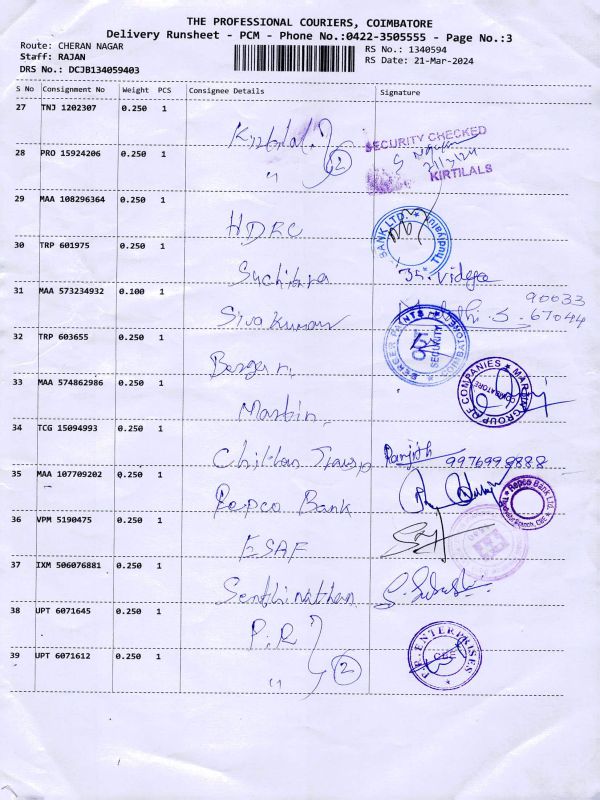 THE PROFESSIONAL COURIERS, COIMBATORE
Delivery Runsheet - PCM - Phone No.:0422-3505555 - Page No.:3
Route: CHERAN NAGAR
RS No.: 1340594
Staff: RAJAN
RS Date: 21-Mar-2024
DRS No.: DCJB134059403
S No Consignment No Weight PCS Consignee Details Signature
27 TNJ 1202307 0.250 1
SECURITY CHECKED
28 PRO 15924206 0.250 1 " 2
KIRTILALS
29 MAA 108296364 0.250 1 HDFC
BANK LTD. * Thudiyalur *
30 TRP 601975 0.250 1 Suchitra Vidya
31 MAA 573234932 0.100 1 Siva Kumar 90033
67044
32 TRP 603655 0.250 1 Berger
BERGER PAINTS COIMBATORE SECURITY
33 MAA 574862986 0.250 1 Martin
MARTIN GROUP OF COMPANIES * COIMBATORE
34 TCG 15094993 0.250 1 Ranjith 9976998888
35 MAA 107709202 0.250 1 Repco Bank
Repco Bank Ltd.
36 VPM 5190475 0.250 1 ESAF
37 IXM 506076881 0.250 1 Senthinathan
38 UPT 6071645 0.250 P.R
P.R. ENTERPRISES * CBE
39 UPT 6071612 0.250 1 " 2